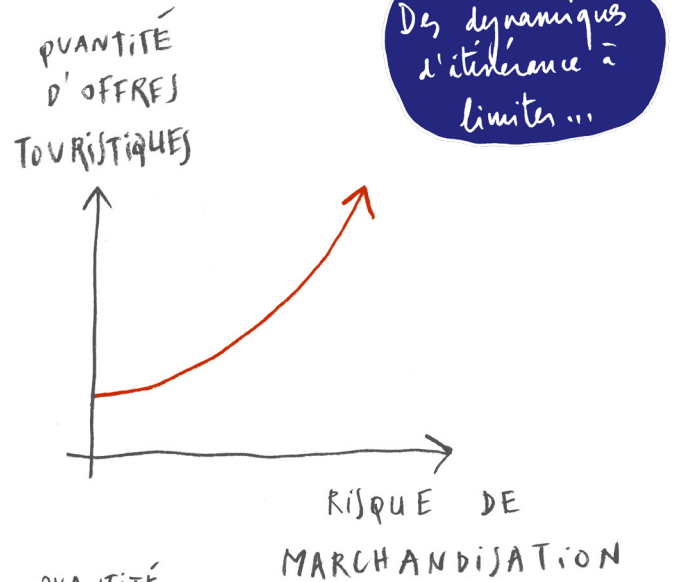 QUANTITÉ
D'OFFRES
TOURISTIQUES
Des dynamiques
d'itinérance à
limiter...
RISQUE DE
MARCHANDISATION
QUANTITÉ